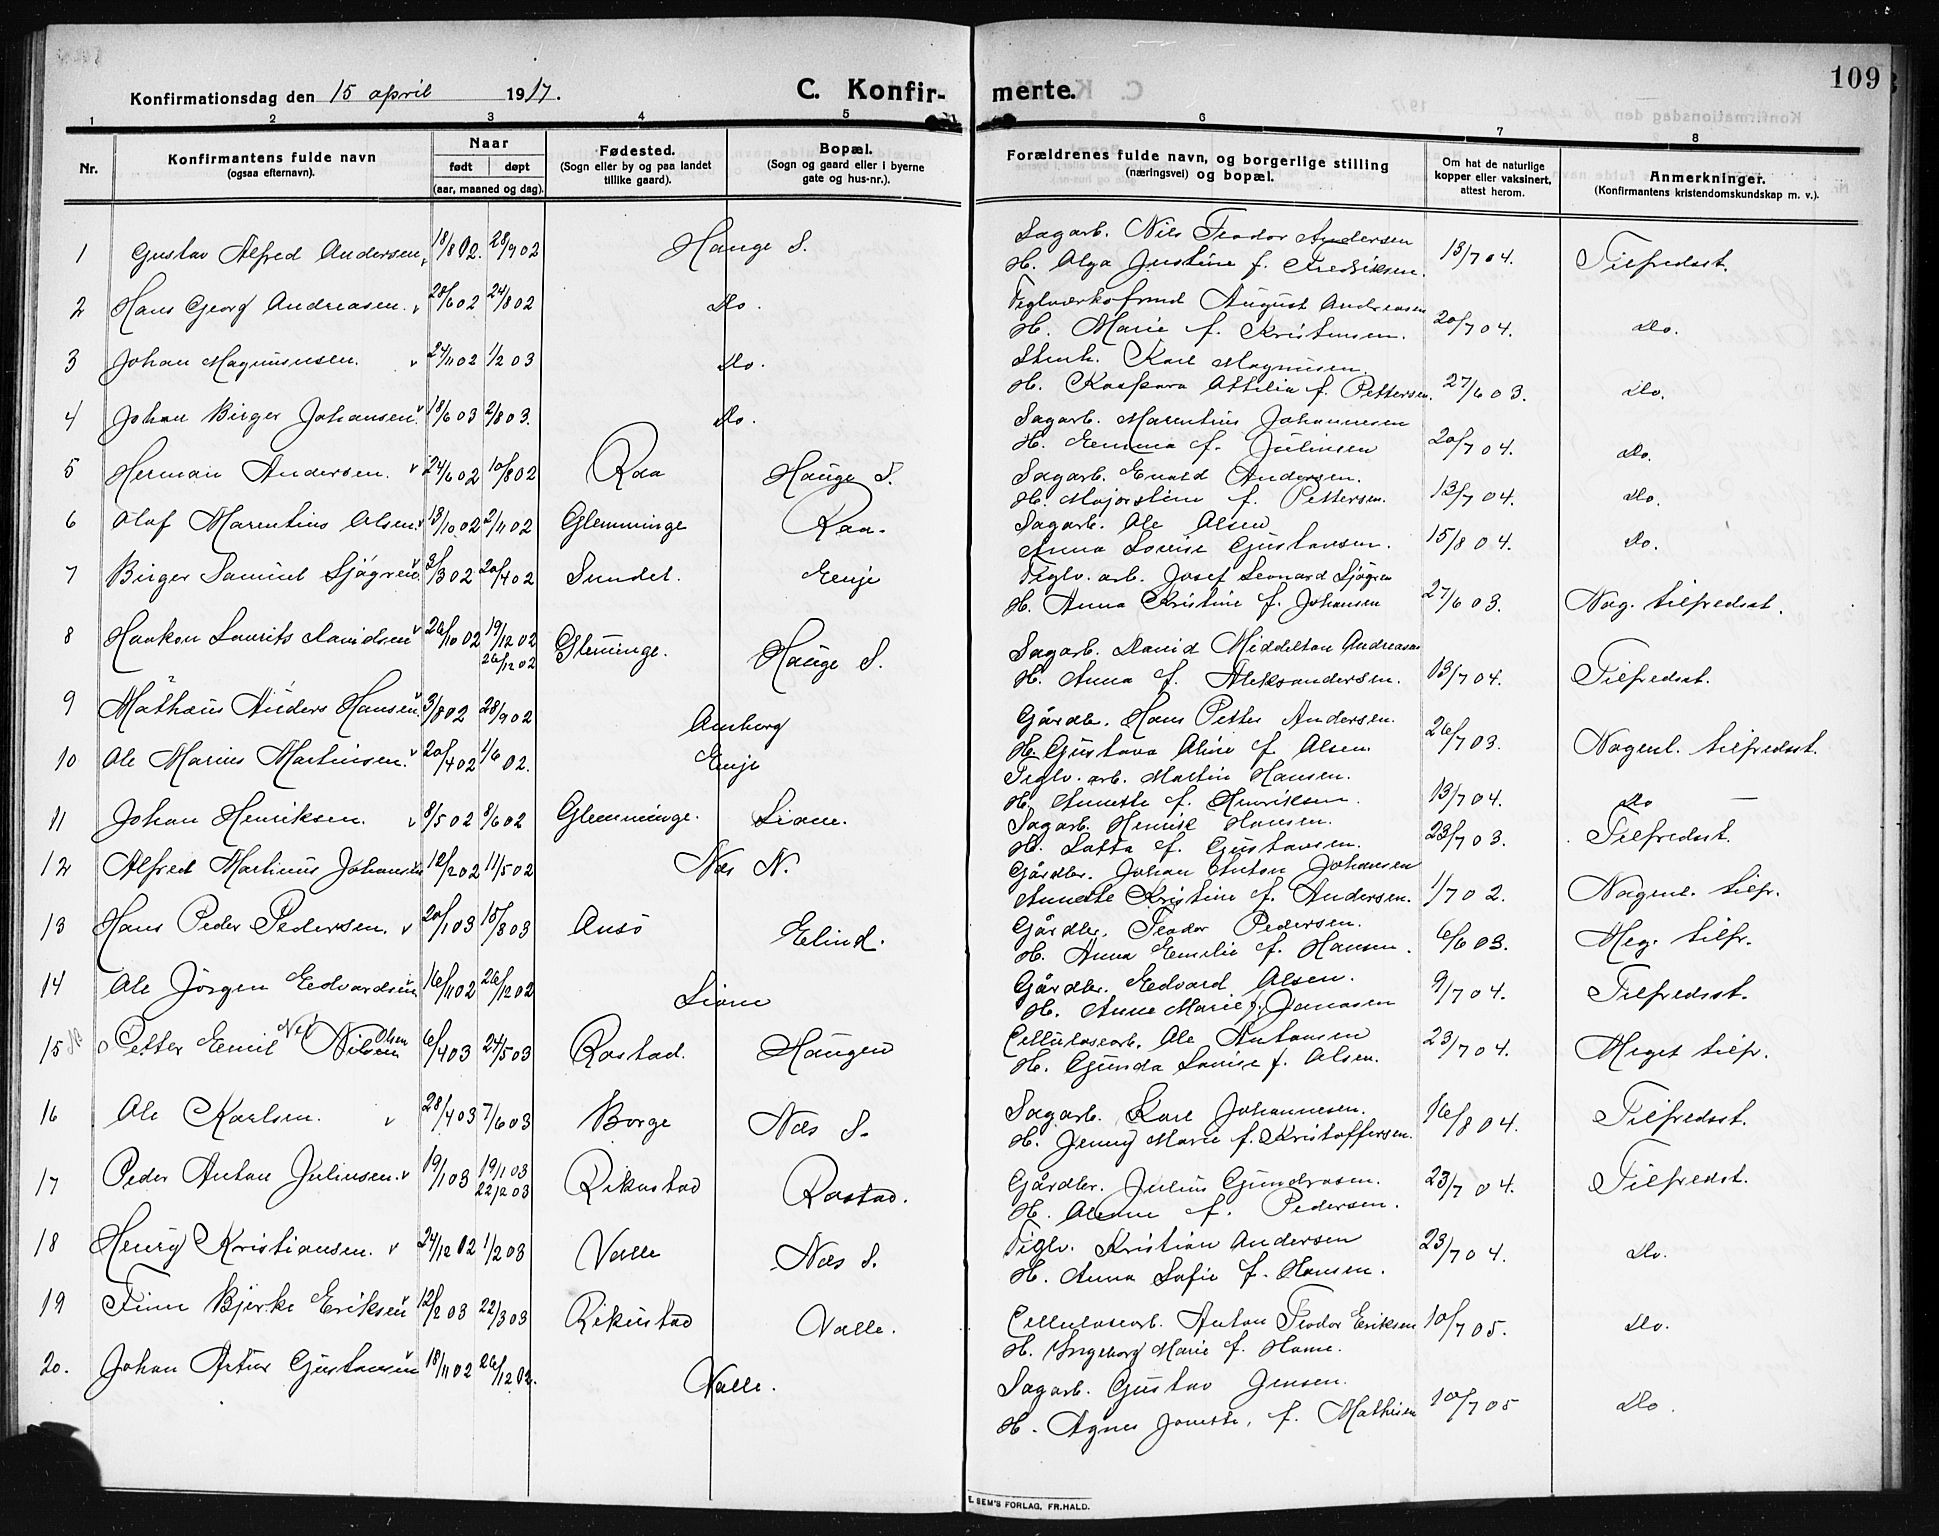 Konfirmationsdag den 15 april 1917. C. Konfirmerte. 109
1 2 3 4 5 6 7 8
Nr. Konfirmantens fulde navn (ogsaa efternavn). Naar født døpt (aar, maaned og dag). Fødested. (Sogn eller by og paa landet tillike gaard). Bopæl. (Sogn og gaard eller i byerne gate og hus-nr.). Forældrenes fulde navn, og borgerlige stilling (næringsvei) og bopæl. Om hat de naturlige kopper eller vaksinert, attest herom. Anmerkninger. (Konfirmantens kristendomskundskap m. v.).
1 Gustav Alfred Andersen 18/8 02. 28/9 02 Hauge S. Sagarb. Nils Teodor Andersen
H. Olga Justine f. Fredriksen. 13/7 04. Tilfredsst.
2 Hans Georg Andreasen. v 28/6 02 24/8 02 Do. Teglværksformd August Andreasen
H. Marie f. Kristensen. 20/7 04. Do.
3 Johan Magnussen. v 24/11 02 1/2 03 Do. Stenh. Karl Magnusen.
H. Kaspara Attilia f. Pettersen. 27/6 03. Do.
4 Johan Birger Johansen v 18/6 03 2/8 03. Do. Sagarb. Marentius Johannesen
H. Emma f. Juliussen 20/7 04. Do.
5 Herman Andersen. v 24/6 02 10/8 02 Raa Hauge S. Sagarb. Evald Andersen.
H. Majorstine f. Pettersen. 13/7 04. Do.
6 Olaf Marentius Olsen v 13/10 02 2/11 02 Glemminge Raa. Sagarb. Ole Olsen
Anna Lovise Gustavsen. 15/8 04. Do.
7 Birger Samuel Sjøgren v 3/3 02 20/4 02 Sundet. Enje Teglv. arb. Josef Leonard Sjøgren
H. Anna Kristine f. Johansen 27/6 03. Nog. tilfredsst.
8 Haakon Laurits Davidsen v 26/10 02 19/12 02 26/12 02 Glemminge. Hauge S. Sagarb. David Middelton Andreasen
H. Anna f. Aleksandersen. 13/7 04. Tilfredsst.
9 Mathæus Anders Hansen v 3/8 02 28/9 02 Amborg Gårdbr. Hans Petter Andersen.
H. Gustava Oline f. Olsen. 26/7 03. Nogenl. tilfredsst.
10 Ole Marius Martinsen. v 20/4 02 1/6 02. Enje Teglv. arb. Martin Hansen.
H. Annette f. Henriksen. 13/7 04. Do
11 Johan Henriksen. v 8/5 02 8/6 02 Glemminge. Liane. Sagarb. Henrik Hansen.
H. Lotta f. Gustavsen. 23/7 03. Tilfredsst.
12 Alfred Martinus Johansen 12/2 02 11/5 02 Næs N. Gårdbr. Johan Anton Johansen
Annette Kristine f. Andersen. 1/7 02. Nogenl. tilfr.
13 Hans Peder Pedersen. v 20/1 03 15/8 03 Ansø Elind. Gårdbr. Teodor Pedersen.
H. Anna Emilie f. Hansen. 6/6 03. Meg. tilfr.
14 Ole Jørgen Edvardsen 16/11 02 26/12 02 Liane Gårdbr. Edvard Olsen.
H. Anne Marie f. Jonassen 9/7 04. Tilfredsst.
15 Petter Emil Nilsen Olsen 6/4 03 24/5 03 Rostad. Haugen Cellulosearb. Ole Antonsen
H. Gunda Lovise f. Olsen. 23/7 04. Meget tilfr.
16 Ole Karlsen. v 28/4 03 7/6 03 Borge Næs S. Sagarb. Karl Johannesen.
H. Jenny Marie f. Kristoffersen. 16/8 04. Tilfredsst.
17 Peder Anton Juliussen. v 19/1 03 19/1 03 22/2 03 Rikustad Rostad. Gårdbr. Julius Gundersen.
H. Anne f. Pedersen. 23/7 04. Tilfredsst.
18 Henry Kristiansen. v 24/12 02 1/2 03 Valle Næs S. Teglv. Kristian Andersen
H. Anna Sofie f. Hansen. 23/7 04. Do.
19 Finn Bjerke Eriksen v 12/2 03 22/3 03 Rikustad Valle. Cellulosearb. Anton Teodor Eriksen
H. Ingeborg Marie f. Hane. 10/7 05. Do.
20. Johan Artur Gustavsen 18/11 02 26/12 02. Valle. Sagarb. Gustav Jensen.
H. Agnes Jonette, f. Mathisen 10/7 05 Do.
E. SEM'S FORLAG, FR.HALD.